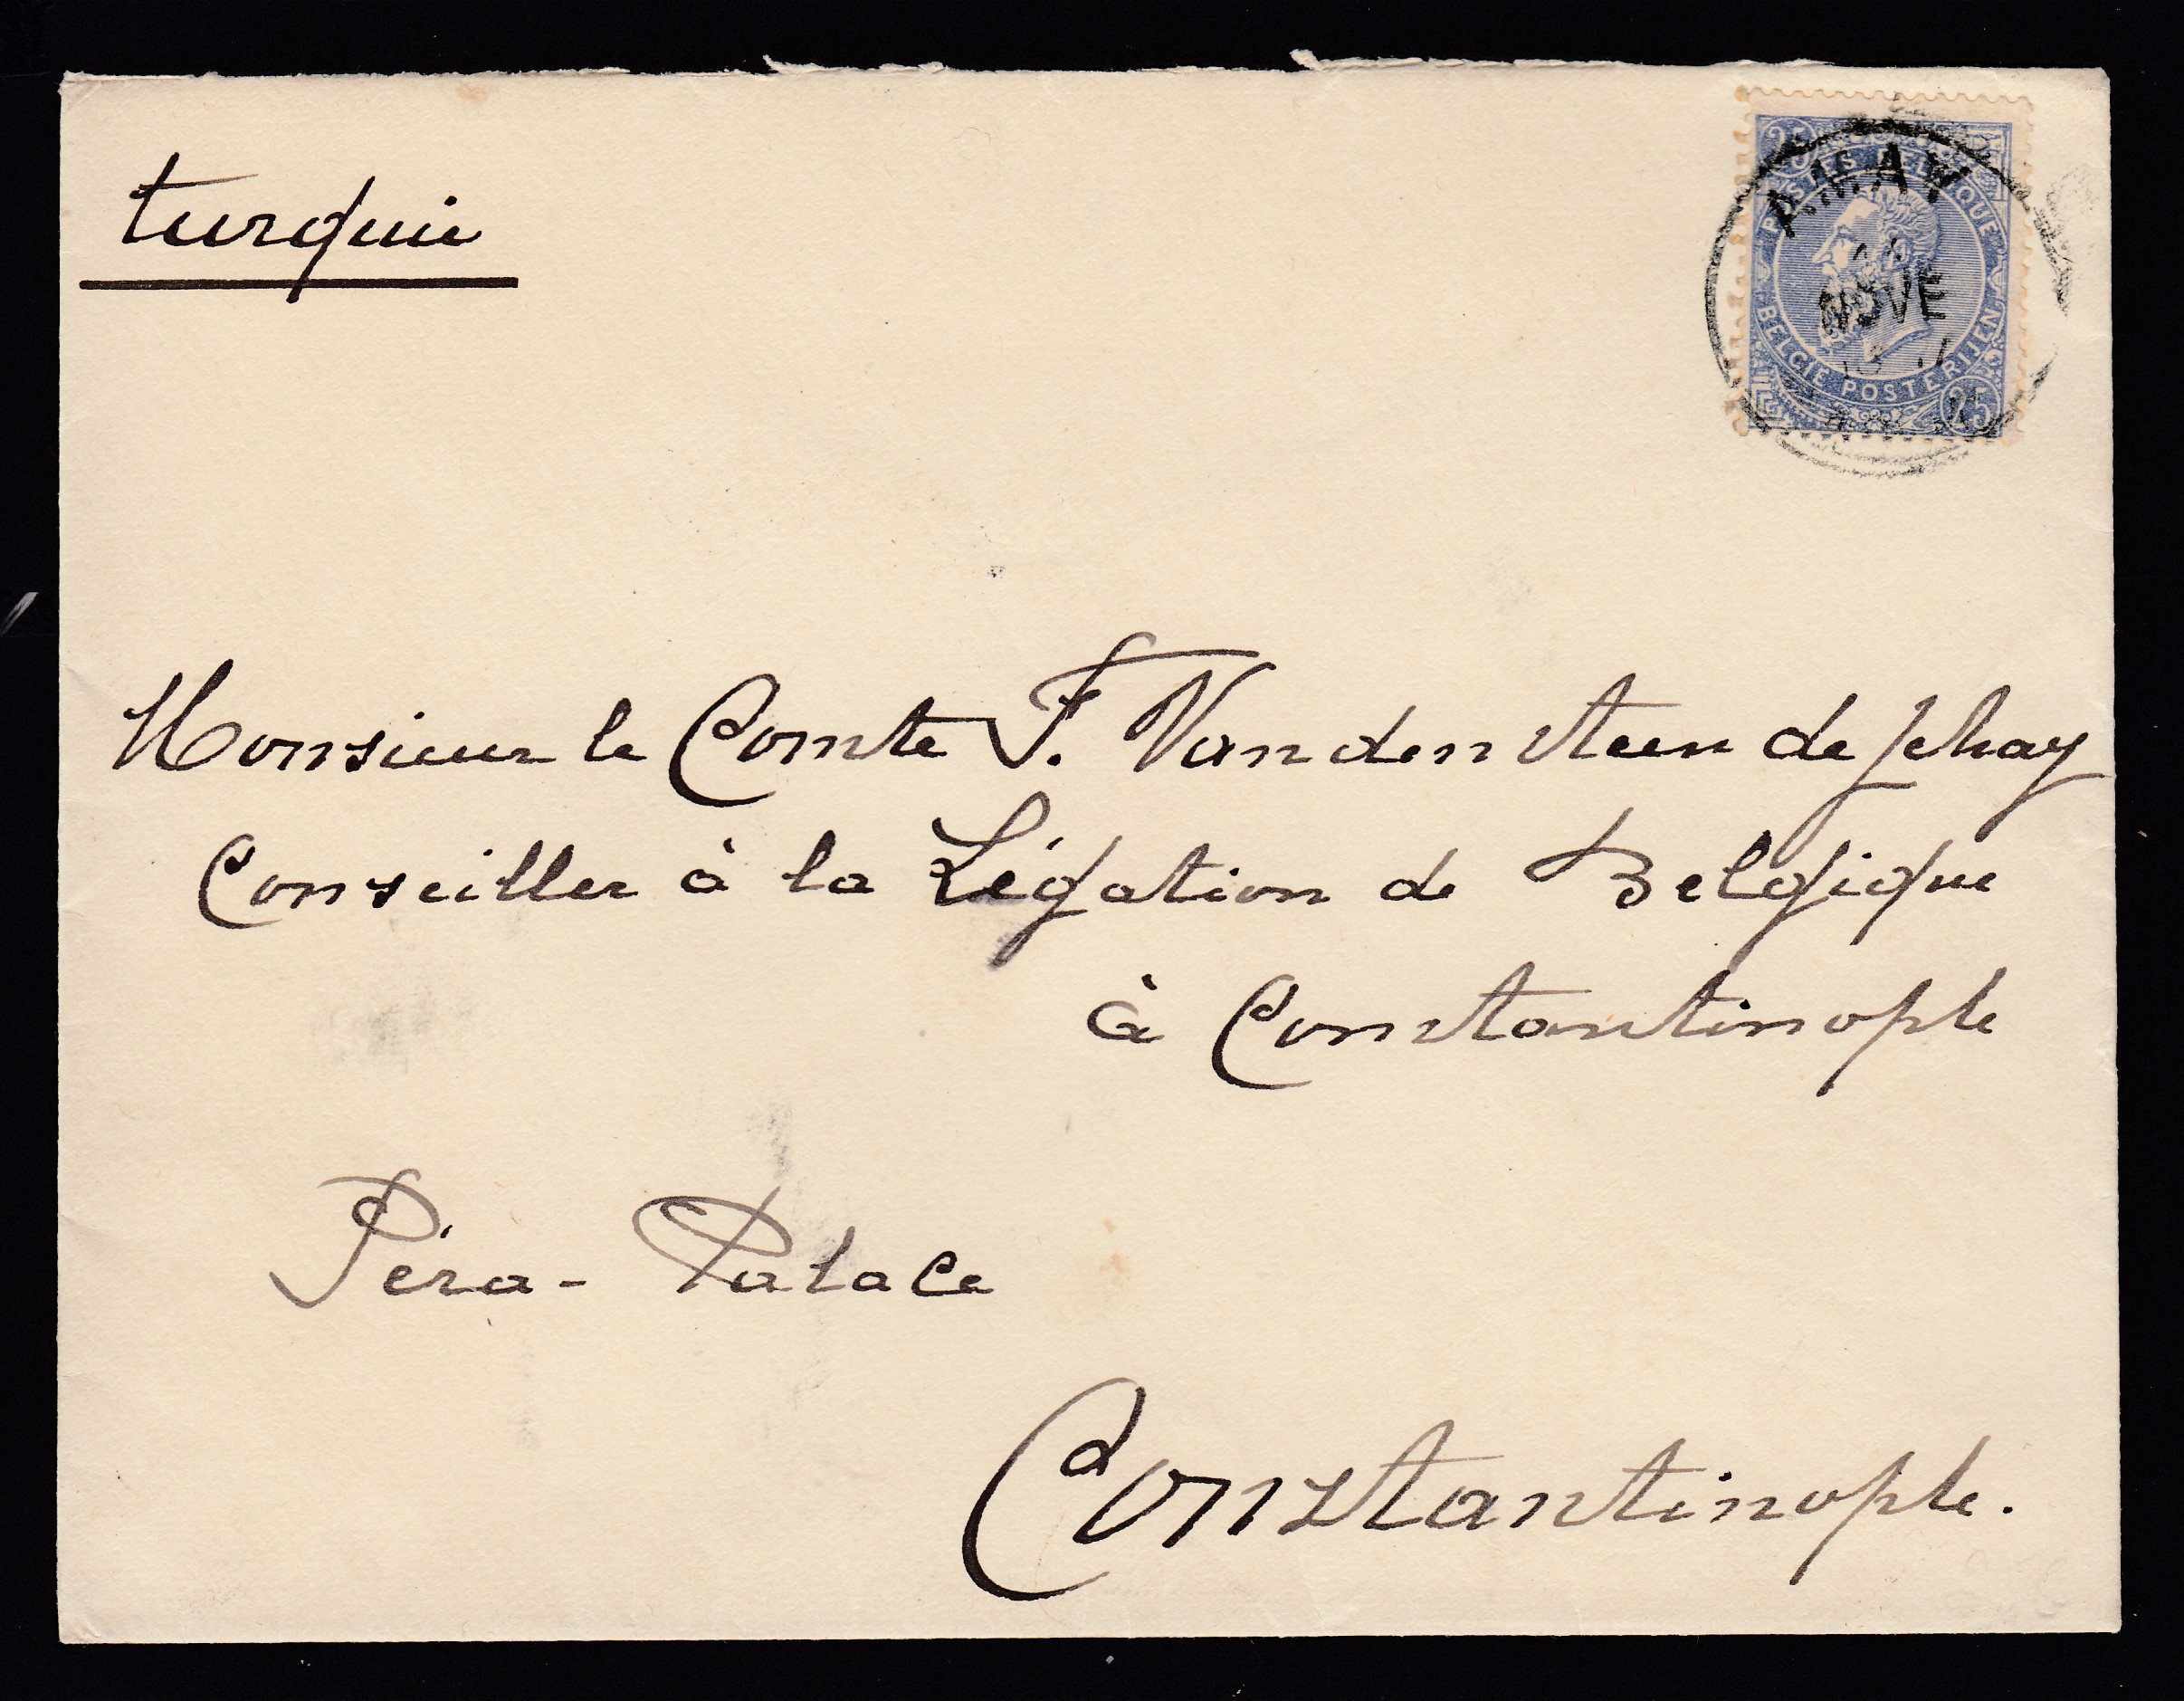 turquie
25
POSTES BELGIQUE
AMAY
NOVE
BELGIE POSTERIJEN
25
Monsieur le Comte F. Van den Steen de Jehay
Conseiller à la Légation de Belgique
à Constantinople
Péra - Palace
Constantinople.